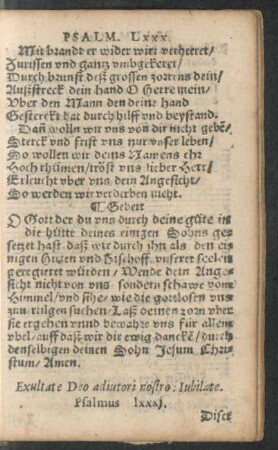 PSALM. Lxxx.
Mit brandt er wider wirt verheeret/
Zurissen und gantz vmbgekeret/
Durch brunst deß grossen zorens dein/
Außstreck dein hand O Herre mein/
Vber den Mann den deine hand
Gesterckt hat durch hilff vnd beystand.
Dañ wolln wir vns von dir nicht gebẽ/
Sterck vnd frist vns nur vnser leben/
So wollen wir deins Namens ehr
Hoch rhümen/tröst vns lieber Herr/
Erleucht vber vns dein Angesicht/
So werden wir verderben nicht.
¶ Gebett
O Gott der du vns durch deine güte in
die hütte deines einigen Sohns ge-
setzt hast daß wir durch ihn als den ei-
nigen Hirten vnd Bischoff vnserer seelen
geregieret würden/ Wende dein Ange-
sicht nicht von vns sondern schawe vom
Himmel/vnd sihe/wie die gottlosen vns
zun reilgen suchen/Laß deinen zorn vber
sie ergehen vnnd bewahre vns für allem
vbel/auff daß wir dir ewig danckẽ/durch
denselbigen deinen Sohn Jesum Chri-
stum/Amen.
Exultate Deo adiutori nostro: Iubilate.
Psalmus lxxxj.
Disce